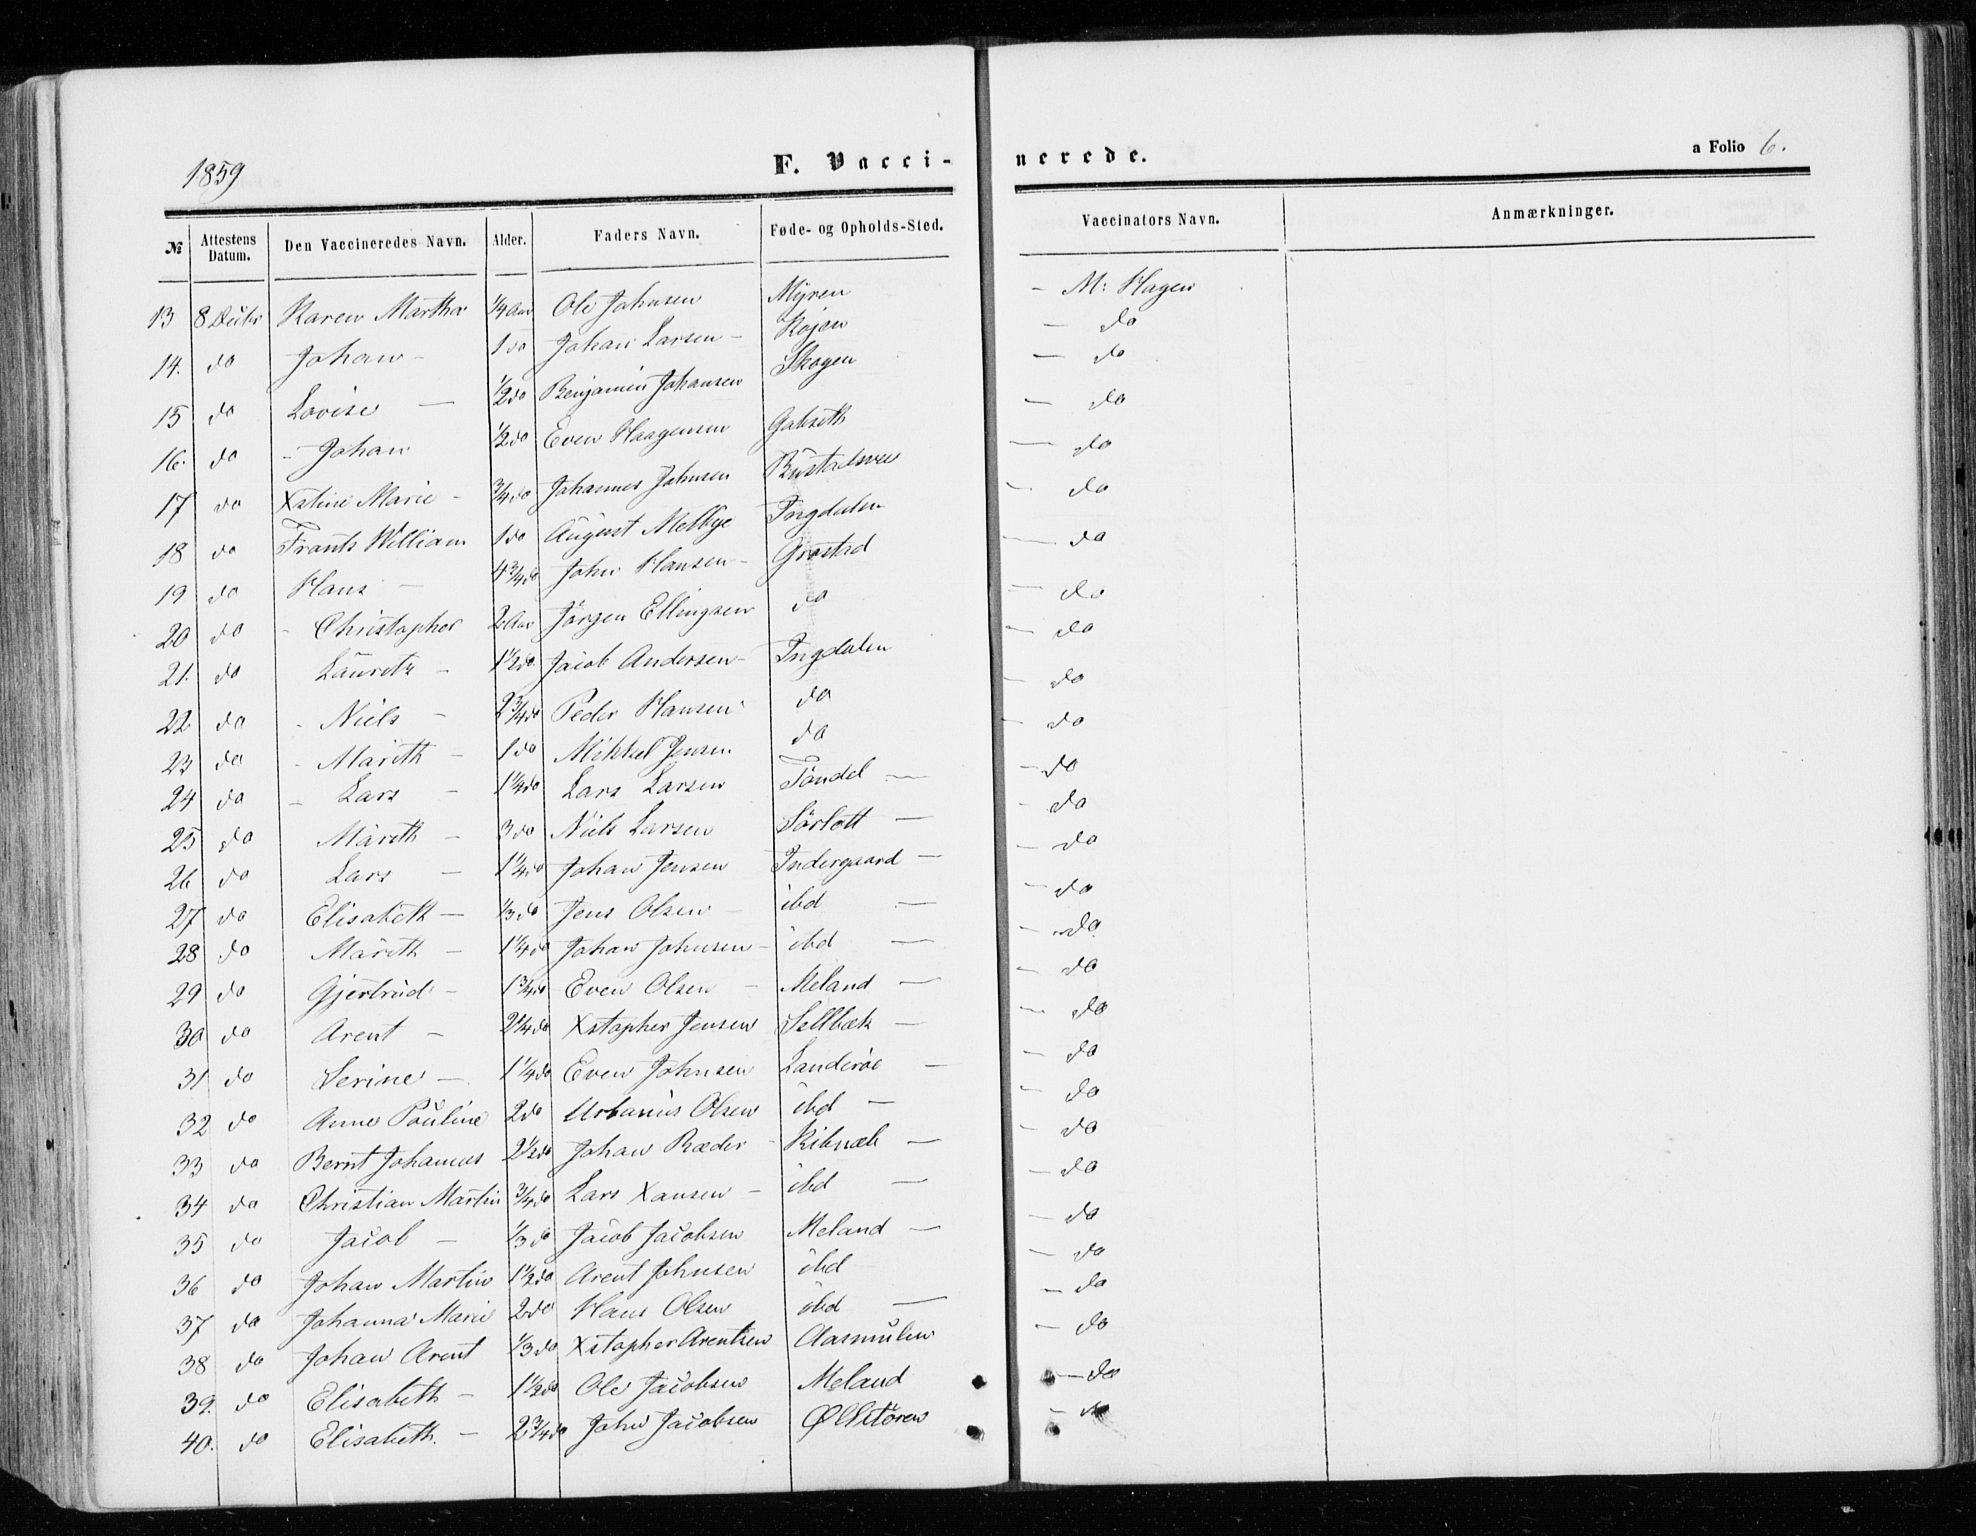 1859
F. Vacci-
nerede.
a Folio 6.
№ Attestens Datum. Den Vaccineredes Navn. Alder. Faders Navn. Føde- og Opholds-Sted. Vaccinators Navn. Anmærkninger.
13 8 Karen Martha 1/4 Aar Ole Johnsen Myren – M: Hagen
14. do Johan – 1 do Johan Larsen – – do
15 do Lovise – 1/2 do Benjamin Johansen Skogen – do
16. do – Johan 1/2 do Even Haagensen – do
17 do Xstine Marie – 3/4 do Johannes Johnsen – do
18 do Frants William 1 do August Melbye Ingdalen – do
19 do Hans – 4 3/4 do John Hansen – Grøstad – do
20 do – Christopher 2 Aar Jørgen Ellingsen do – do
21. do Lauritz – 1 1/2 do. Jacob Andersen – Ingdalen – do
22 do – Niels – 2 3/4 do Peder Hansen do – do
23 do – Marith – 1 do Mikkel Jensen do – do
24 do – Lars – 1 1/4 do Lars Larsen Tøndel – – do
25 do Marith – 3 do Niels Larsen Sørlott – – do
26 do Lars – 1 1/4 do Johan Jensen Indergaard – – do
27 do Elisabeth – 1/3 do Jens Olsen – ibd – – do
28 do Marith – 1 1/4 do Johan Johnsen – ibd – – do
29 do Gjertrud – 1 3/4 do Even Olsen – Meland – – do
30 do Arent – 2 1/4 do Xstopher Jensen Sellbek – – do
31 do Serine – 1 1/4 do Even Johnsen Landerøe – – do
32 do Anne Pauline 2 do Urbanus Olsen ibd – – do
33 do Bernt Johannes 2 1/2 do Johan Ræder – – – do
34 do Christian Martin 3/4 do Lars Xansen – ibd – – do
35 do Jacob – 1/3 do Jacob Jacobsen Meland – – do
36 do Johan Martin 1 1/2 do Arent Johnsen ibd – – do
37 do Johanna Marie 2 do Hans Olsen ibd – – do
38 do Johan Arent 1/3 do Xstopher Arentsen Aasmulen – do
39. do Elisabeth – 1 1/2 do Ole Jacobsen Meland – do
40. do Elisabeth. – 2 3/4 do John Jacobsen – do